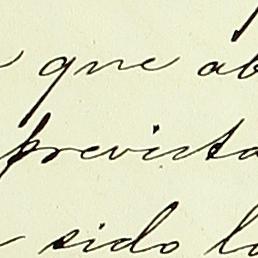 que ab
prevista
sido lo